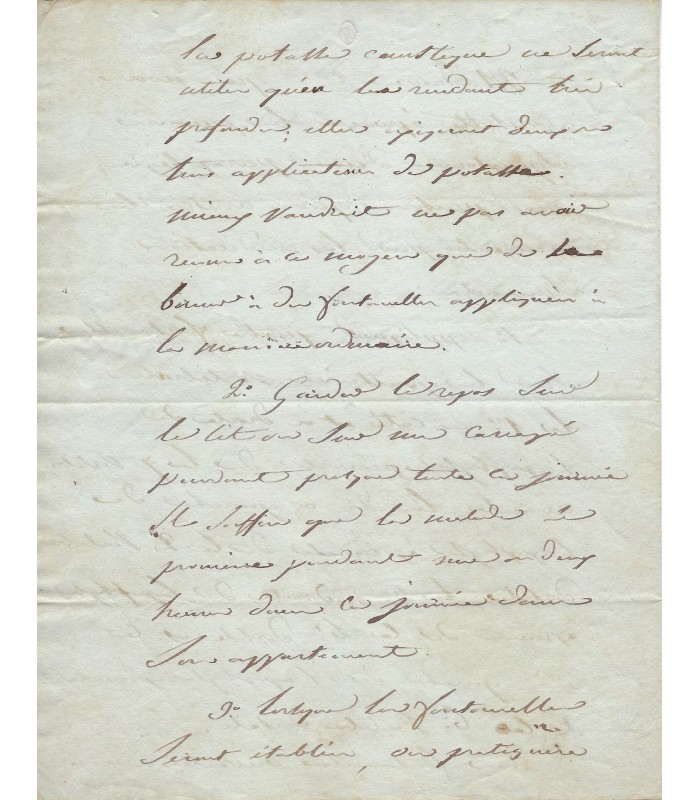 la potasse caustique ne seront
utiles qu'en les rendant très
profondes, elles exigeront deux ou
trois applications de potasse.
mieux vaudrait ne pas avoir
recours à ce moyen que de se
borner à des fontanelles appliquées à
la manière ordinaire.
2.o Garder le repos sur
le lit ou sur un canapé
pendant presque toute la journée
Il suffira que le malade se
promène pendant une ou deux
heures dans la journée dans
son appartement.
3.o lorsque les fontanelles
seront établies, on pratiquera